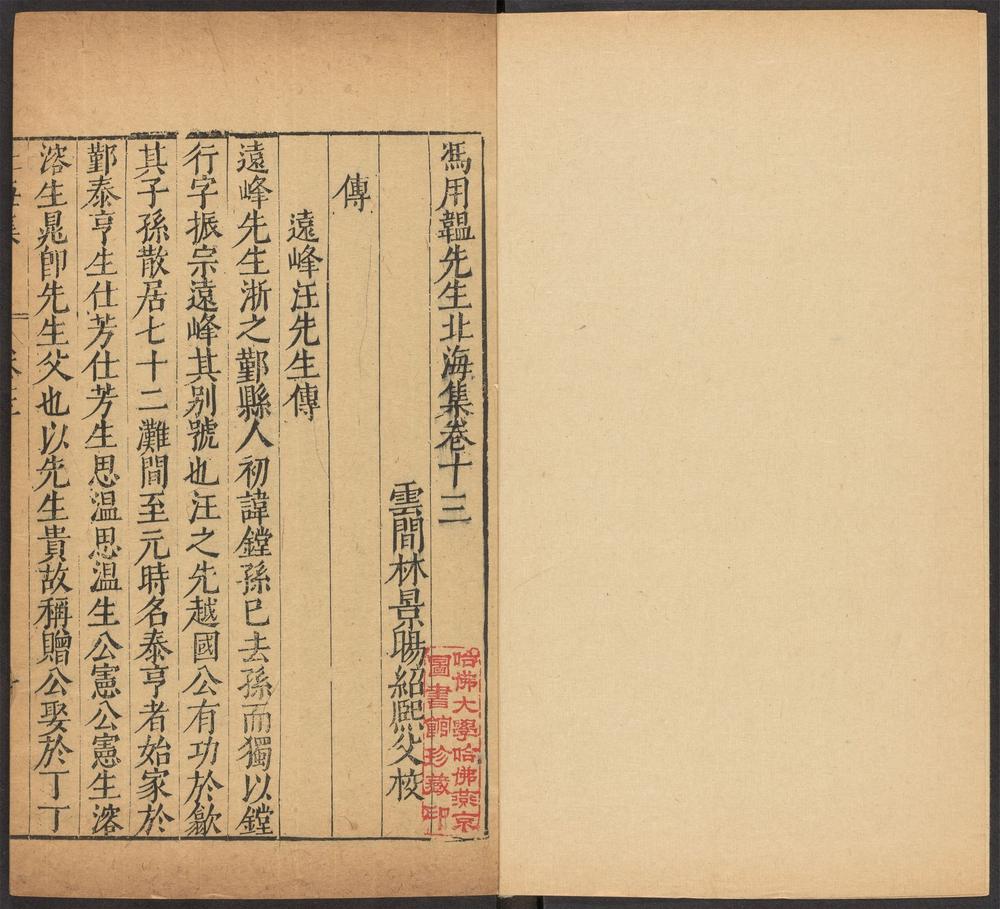 馮用韞先生北海集卷十三
雲間林景暘紹熙父校
傳
遠峰汪先生傳
遠峰先生浙之鄞縣人初諱鏜孫已去孫而獨以鏜
行字振宗遠峰其别號也汪之先越國公有功於歙
其子孫散居七十二灘間至元時名泰亨者始家於
鄞泰亨生仕芳仕芳生思温思温生公憲公憲生溶
溶生晃卽先生父也以先生貴故稱贈公娶於丁丁
哈佛大學哈佛燕京
圖書館珍藏印